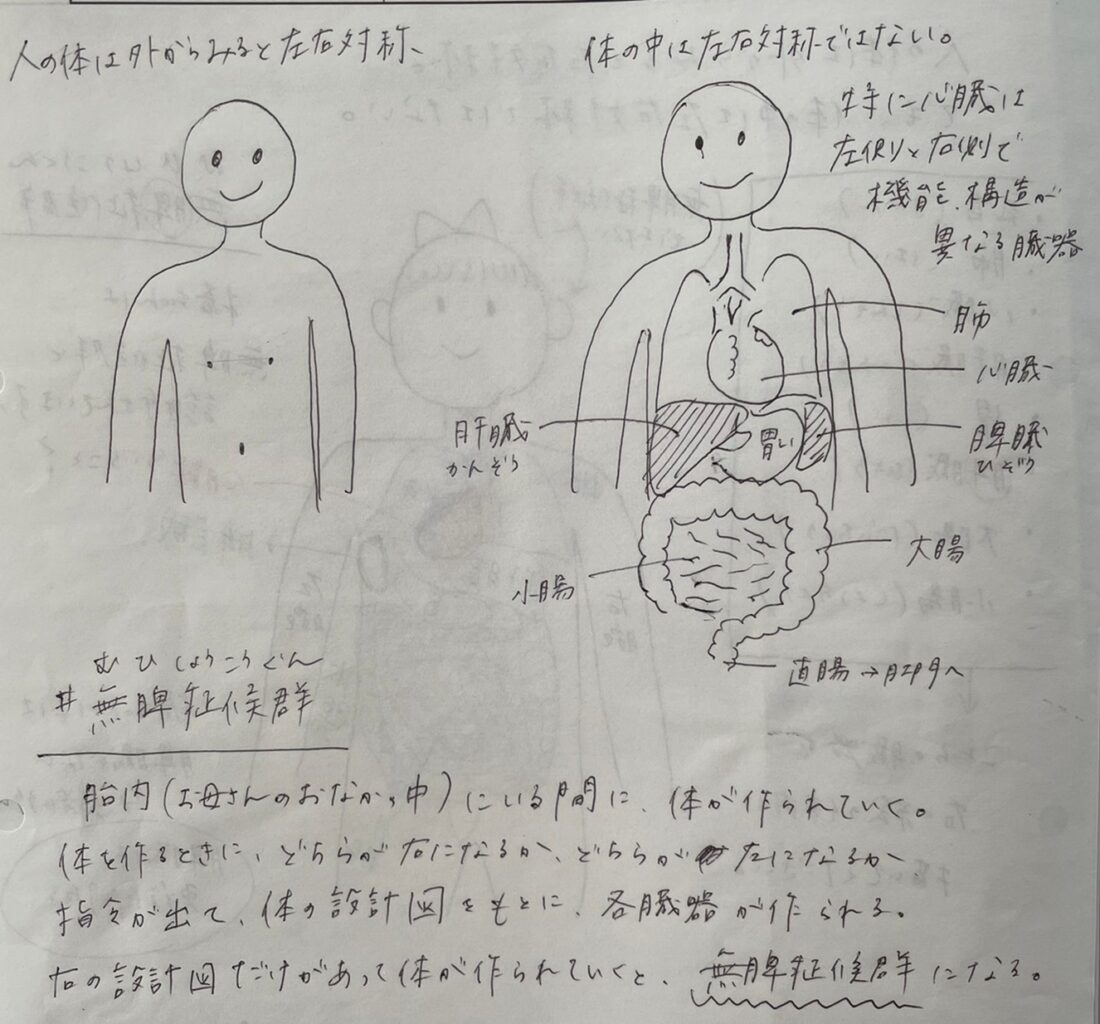 人の体は外からみると左右対称、
体の中は左右対称ではない。
特に心臓は
左側と右側で
機能、構造が
異なる臓器
肺
心臓
肝臓
かんぞう
胃い
脾臓
ひぞう
小腸
大腸
直腸→肛門へ
むひしょうこうぐん
#無脾症候群
胎内(お母さんのおなかの中)にいる間に、体が作られていく。
体を作るときに、どちらが右になるか、どちらが左になるか
指令が出て、体の設計図をもとに、各臓器が作られる。
右の設計図だけがあって体が作られていくと、無脾症候群になる。